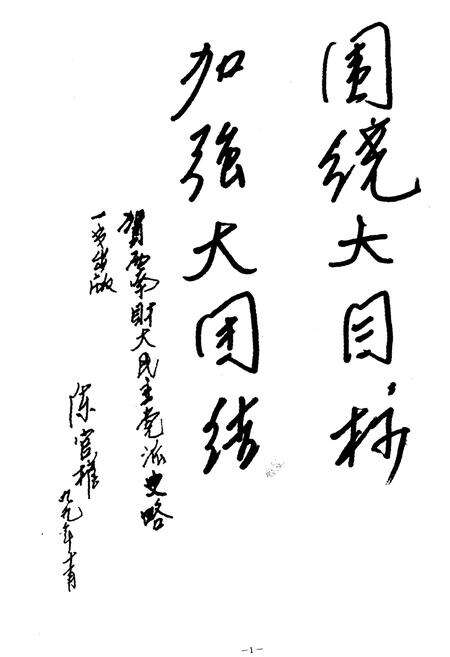 围绕大目标
加强大团结
贺西南财大民主党派史略
一书出版
陈官权
九九年十月
-1-